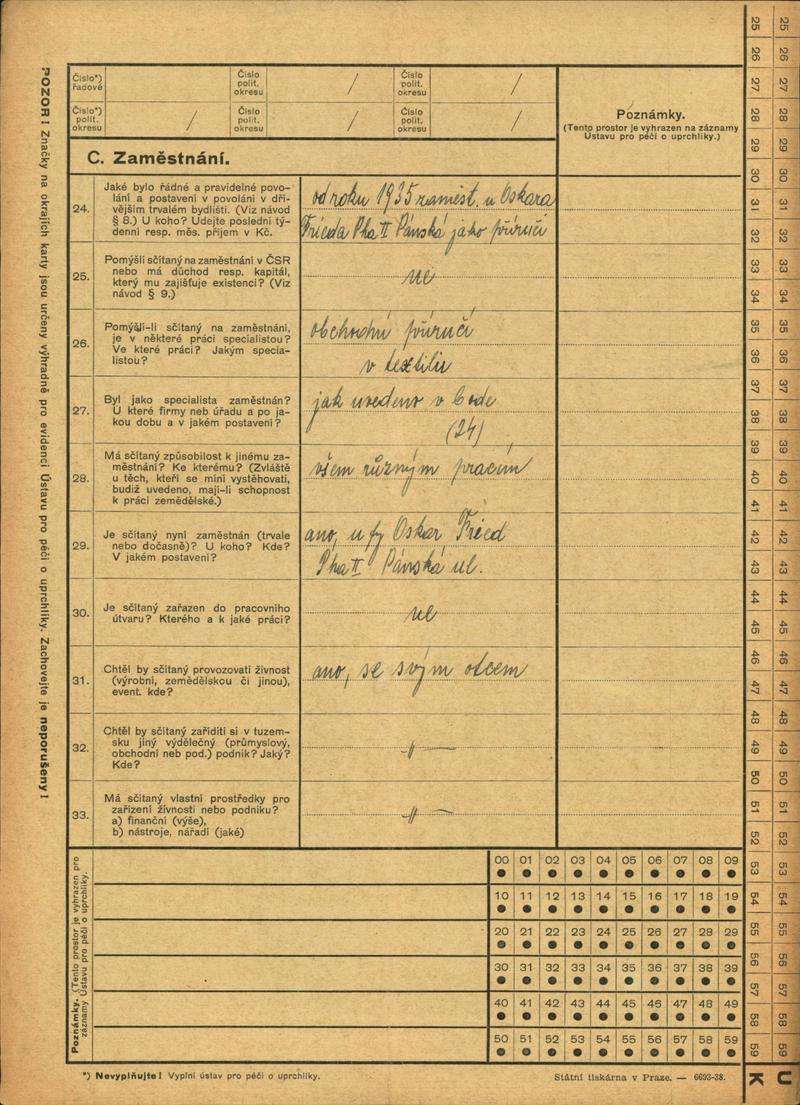 Číslo*) řadové
Číslo polit. okresu /
Číslo polit. okresu /
Číslo*) polit. okresu /
Číslo polit. okresu /
Číslo polit. okresu /
Poznámky.
(Tento prostor je vyhrazen na záznamy
Ústavu pro péči o uprchlíky.)
C. Zaměstnání.
24.
Jaké bylo řádné a pravidelné povo-
lání a postavení v povolání v dří-
vějším trvalém bydlišti. (Viz návod
§ 8.) U koho? Udejte poslední tý-
denní resp. měs. příjem v Kč.
od roku 1935 zaměst. u Oskara
Frieda Pha II Pánská jako příručí
25.
Pomýšlí sčítaný na zaměstnání v ČSR
nebo má důchod resp. kapitál,
který mu zajišťuje existenci? (Viz
návod § 9.)
ne
26.
Pomýšlí-li sčítaný na zaměstnání,
je v některé práci specialistou?
Ve které práci? Jakým specia-
listou?
obchodní příručí
v textiliu
27.
Byl jako specialista zaměstnán?
U které firmy neb úřadu a po ja-
kou dobu a v jakém postavení?
jak uvedeno v bode
(24)
28.
Má sčítaný způsobilost k jinému za-
městnání? Ke kterému? (Zvláště
u těch, kteří se míní vystěhovati,
budiž uvedeno, mají-li schopnost
k práci zemědělské.)
všem různým pracím
29.
Je sčítaný nyní zaměstnán (trvale
nebo dočasně)? U koho? Kde?
V jakém postavení?
ano, u fy Oskar Fried
Pha II Pánská ul.
30.
Je sčítaný zařazen do pracovního
útvaru? Kterého a k jaké práci?
ne
31.
Chtěl by sčítaný provozovati živnost
(výrobní, zemědělskou či jinou),
event. kde?
ano, se svým otcem
32.
Chtěl by sčítaný zaříditi si v tuzem-
sku jiný výdělečný (průmyslový,
obchodní neb pod.) podnik? Jaký?
Kde?
-〃-
33.
Má sčítaný vlastní prostředky pro
zařízení živnosti nebo podniku?
a) finanční (výše),
b) nástroje, nářadí (jaké)
-〃-
Poznámky. (Tento prostor je vyhrazen pro
záznamy Ústavu pro péči o uprchlíky.
00 01 02 03 04 05 06 07 08 09
10 11 12 13 14 15 16 17 18 19
20 21 22 23 24 25 26 27 28 29
30 31 32 33 34 35 36 37 38 39
40 41 42 43 44 45 46 47 48 49
50 51 52 53 54 55 56 57 58 59
*) Nevyplňujte! Vyplní ústav pro péči o uprchlíky.
Státní tiskárna v Praze. — 6693-38.
POZOR! Značky na okrajích karty jsou určeny výhradně pro evidenci Ústavu pro péči o uprchlíky. Zachovejte je neporušeny!
25 26 27 28 29 30 31 32 33 34 35 36 37 38 39 40 41 42 43 44 45 46 47 48 49 50 51 52 53 54 55 56 57 58 59 K
25 26 27 28 29 30 31 32 33 34 35 36 37 38 39 40 41 42 43 44 45 46 47 48 49 50 51 52 53 54 55 56 57 58 59 U